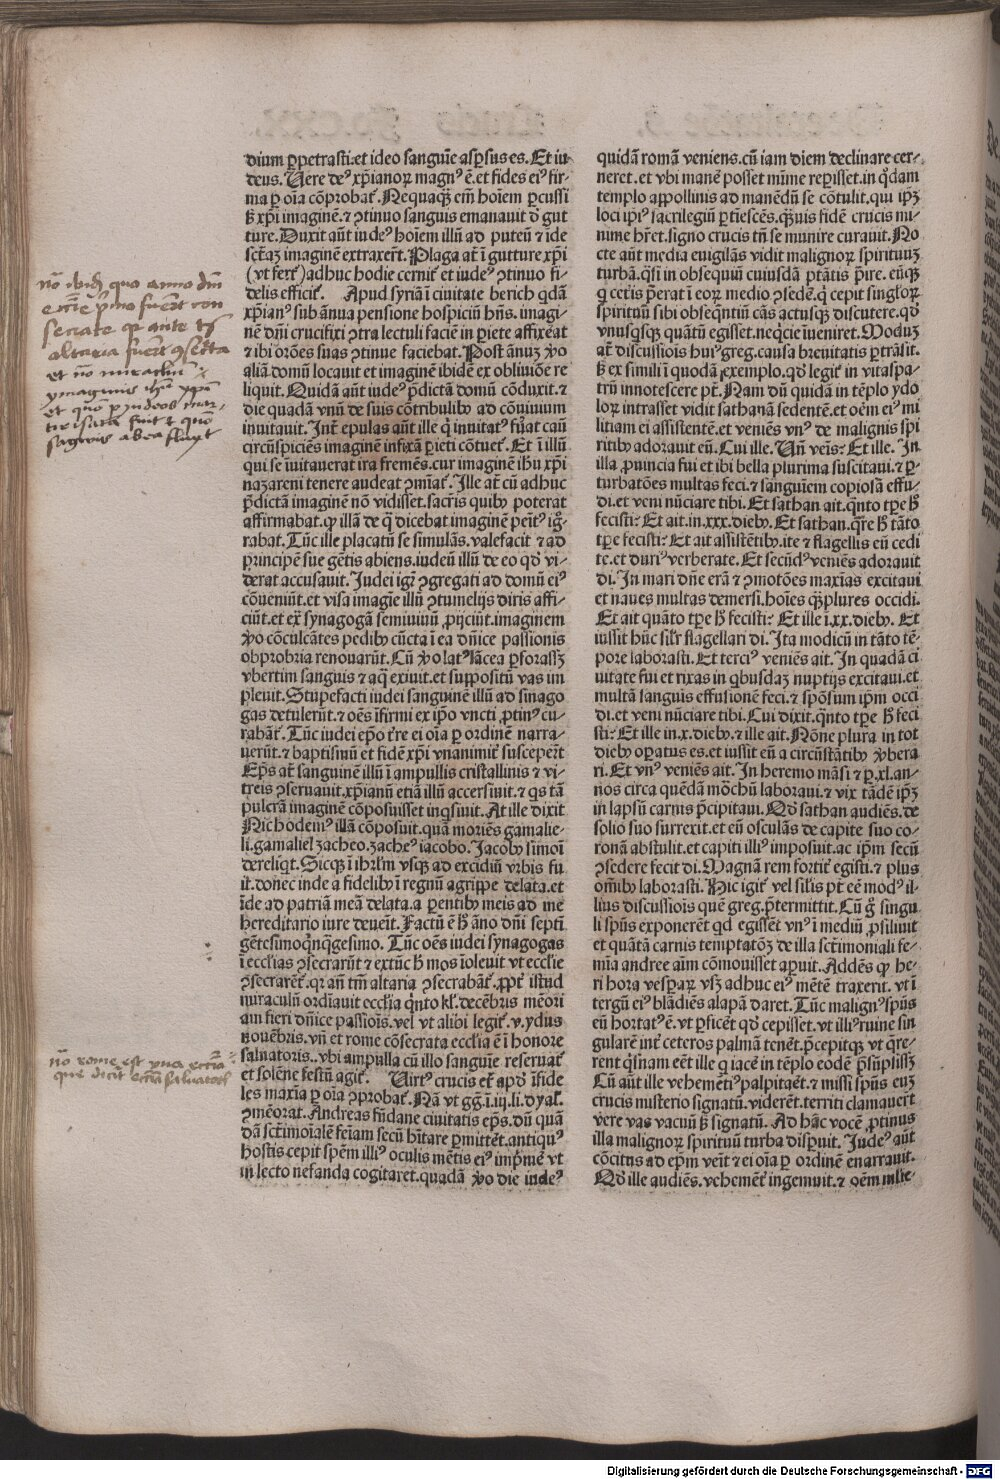 dium ꝑpetrasti.et ideo sanguīe asꝑsus es. Et iu
deus. Uere deꝰ xp̄ianoꝝ magnꝰ ē.et fides eiꝰ fir-
ma ꝑ oīa cōprobat᷑. Nequaqȝ em̄ hoīem ꝑcussi
sȝ xp̄i imaginē.⁊ ꝯtinuo sanguis emanauit d̄ gut
ture. Duxit aūt iudeꝰ hoīem illū ad puteū ⁊ īde
sctāȝ imaginē extraxer̄t. Plaga at̄ ī gutture xp̄i
(vt fert᷑) adhuc hodie cernit᷑ et iudeꝰ ꝯtinuo fi-
delis efficit᷑. Apud syriā ī ciuitate berich qdā
xp̄ianꝰ sub ānua pensione hospiciū hn̄s. imagi-
nē dn̄i crucifixi ꝯtra lectuli faciē in ꝑiete affixeat
⁊ ibi orōes suas ꝯtinue faciebat. Post ānuȝ ꝟo
aliā domū locauit et imaginē ibidē ex obliuiōe re
liquit. Quidā aūt iudeꝰ p̄dictā domū cōduxit.⁊
die quadā vnū de suis cōtribulibꝰ ad cōuiuium
inuitauit. Int᷑ epulas aūt ille q̄ inuitatꝰ fu᷑at caū
circūspiciēs imaginē infixā ꝑieti cōtuet᷑. Et ī illū
qui se īuitauerat ira fremēs.cur imaginē ihū xp̄i
nazareni tenere audeat ꝯmīat᷑. Ille at̄ cū adhuc
p̄dictā imaginē nō vidisset.sacrīs quibꝰ poterat
affirmabat.ꝙ illā de q̄ dicebat imaginē penit᷑ꝰ iḡ-
rabat. Tūc ille placatū se simulās.valefacit ⁊ ad
principē sue gētis abiens.iudeū illū de eo qd̄ vi-
derat accusauit. Iudei igr̄ ꝯgregati ad domū eiꝰ
cōueniūt.et visa imagīe illū ꝯtumelijs diris affi-
ciūt.et ex᷑ synagogā semiuiuū ꝓijciūt.imaginem
ꝟo cōculcātes pedibꝰ cūcta ī ea dn̄ice passionis
obprobria renouarūt. Cū ꝟo latꝰ lācea ꝑforassȝ
vbertim sanguis ⁊ aq̄ exiuit.et suppositū vas im
pleuit. Stupefacti iudei sanguinē illū ad sinago
gas detulerūt.⁊ oēs īfirmi ex ip̄o vncti ꝓtinꝰ cu-
rabāt᷑. Tūc iudei ep̄o tr̄e ei oīa ꝑ ordinē narra-
uerūt.⁊ baptismū et fidē xp̄i vnanimit᷑ susceper̄t
Ep̄s at̄ sanguinē illū ī ampullis cristallinis ⁊ vi-
treis ꝯseruauit.xp̄ianū etiā illū accersiuit.⁊ qs tā
pulcrā imaginē cōposuisset inqsiuit. At ille dixit
Nichodemꝰ illā cōposuit.quā moriēs gamalie-
li.gamaliel zacheo.zacheꝰ iacobo. Iacobꝰ simoī
dereliqt. Sicqȝ ī ihrl̄m vsqȝ ad excidiū vrbis fu
it.donec inde a fidelibꝰ ī regnū agrippe delata.et
īde ad patriā meā delata.a ꝑentibꝰ meis ad me
hereditario iure deuēit. Factū ē h̄ āno dn̄i septī
gētesimoqͥnqgesimo. Tūc oēs iudei synagogas
ī eccl̄ias ꝯsecrarūt ⁊ extūc h̄ mos īoleuit vt eccl̄ie
ꝯsecrarēt᷑. qr an̄ tm̄ altaria ꝯsecrabāt᷑. ꝓpt᷑ istud
miraculū ordīauit eccl̄ia qnto kl̓. decēbris mēori
am fieri dn̄ice passiōis.vel vt alibi legit᷑.v.ydus
nouēbris.vn̄ et rome cōsecrata eccl̄ia ē ī honore
saluatoris..vbi ampulla cū illo sanguīe reseruat᷑
et solēne festū agit᷑. Uirtꝰ crucis et᷑ apd̄ īfide
les maxīa ꝑ oīa ꝯprobat᷑. Nā vt gḡ.ī.iij.li.dyal᷑.
ꝯmēorat. Andreas fūdane ciuitatis ep̄s.dū quā
dā sctīmoīalē feīam secū hītare ꝑmittēt.antiquꝰ
hostis cepit spēm illiꝰ oculis mētis eiꝰ imp̄mē vt
in lecto nefanda cogitaret.quadā ꝟo die iudeꝰ
quidā romā veniens.cū iam diem declinare cer-
neret.et vbi manē posset mīme reꝑisset.in qdam
templo appollinis ad manēdū se cōtulit.qui ip̄ȝ
loci ip̄iꝰ sacrilegiū ꝑtīescēs.quis fidē crucis mi-
nime hr̄et.signo crucis tn̄ se munire curauit. No
cte aūt media euigilās vidit malignoꝝ spirituuȝ
turbā.qsi in obsequiū cuiusdā ptātis p̄ire. eūqȝ
q ceteis p̄erat ī eoꝝ medio ꝯsedē.q cepit singloꝝ
spirituū sibi obseqntiū cās actusqȝ discutere.qd̄
vnusqsqȝ quātū egisset.neqcie īueniret. Moduȝ
at̄ discussiōis huiꝰ greg.causa breuitatis ꝑtrāsit.
sȝ ex simili ī quodā exemplo.qd̄ legit᷑ in vitaspa-
trū innotescere pt̄. Nam dū quidā in tēplo ydo
loꝝ intrasset vidit sathanā sedentē.et oēm eiꝰ mi
litiam ei assistentē.et veniēs vnꝰ de malignis spi
ritibꝰ adorauit eū. Cui ille. Un̄ veīs? Et ille. In
illa ꝓuincia fui et ibi bella plurima suscitaui.⁊ ꝑ-
turbatōes multas feci.⁊ sanguīem copiosā effu-
di.et veni nūciare tibi. Et sathan ait.qnto tp̄e h̄
fecisti? Et ait.in.xxx.diebꝰ. Et sathan.qr̄e h̄ tāto
tp̄e fecisti? Et ait assistētibꝰ.ite ⁊ flagellis eū cedi
te.et duriꝰ verberate. Et secūdꝰ veniēs adorauit
di. In mari dn̄e erā ⁊ ꝯmotōes maxīas excitaui
et naues multas demersi.hoīes qȝplures occidi.
Et ait quāto tp̄e h̄ fecisti? Et ille ī.xx.diebꝰ. Et
iussit hūc silr̄ flagellari di. Ita modicū in tāto tē-
pore laborasti. Et terciꝰ veniēs ait. In quadā ci
uitate fui et rixas in qbusdaȝ nuptijs excitaui.et
multā sanguis effusionē feci.⁊ spōsum ip̄m occi
di.et veni nūciare tibi. Cui dixit.qnto tp̄e h̄ feci
sti? Et ille in.x.diebꝰ.⁊ ille ait. Nōne plura in tot
diebꝰ oꝑatus es.et iussit eū a circūstātibꝰ ꝟbera
ri. Et vnꝰ veniēs ait. In heremo māsi ⁊ ꝑ.xl.an-
nos circa quēdā mōchū laboraui.⁊ vix tādē ip̄ȝ
in lapsū carnis p̄cipitaui. Qd̄ sathan audiēs.de
solio suo surrexit.et eū osculās de capite suo co-
ronā abstulit.et capiti illiꝰ imposuit.ac ip̄m secū
ꝯsedere fecit di. Magnā rem fortit᷑ egisti.⁊ plus
om̄ibꝰ laborasti. Hic igit᷑ vel silīs pt̄ eē modꝰ il-
lius discussiois quē greg.p̄termittit. Cū g̊ singu
li spūs exponerēt qd egissēt vnꝰ ī mediū ꝓsiliuit
et quātā carnis temptatōȝ de illa sctīmoniali fe-
mīa andree aīm cōmouisset aꝑuit. Addēs ꝙ he-
ri hora vesꝑaꝝ vsȝ adhuc eiꝰ mētē traxerit. vt ī
tergū eiꝰ blādiēs alapā daret. Tūc malignꝰ spūs
eū hortat᷑ ē.vt ꝑficēt qd̄ cepisset.vt illiꝰ ruine sin
gularē int᷑ ceteros palmā tenēt.p̄cepitqȝ vt qre-
rent qsnam eēt ille q iacē in tēplo eodē p̄sūpsissȝ
Cū aūt ille vehemēt᷑ꝰ palpitaēt.⁊ missi spūs euȝ
crucis misterio signatū.viderēt.territi clamauer̄t
vere vas vacuū sȝ signatū. Ad hāc vocē ꝓtinus
illa malignoꝝ spirituū turba disꝑuit. Iudeꝰ aūt
cōcitus ad ep̄m venit ⁊ ei oīa ꝑ ordinē enarrauit.
Qd̄ ille audiēs.vehemēt᷑ ingemuit.⁊ oēm mlie-
nō ibidꝫ quo anno dn̄i
ecclīe p̄mo fuer̄t con
secrate qꝛ ante tm̄
altaria fuer̄t ꝯsecr̄ta
et nō miraclū
ymaginis ihū xp̄i
et quō ꝑ Judeos
nō rome est vna eccīa
que dicit᷑ eccīa saluatoris
Digitalisierung gefördert durch die Deutsche Forschungsgemeinschaft - DFG